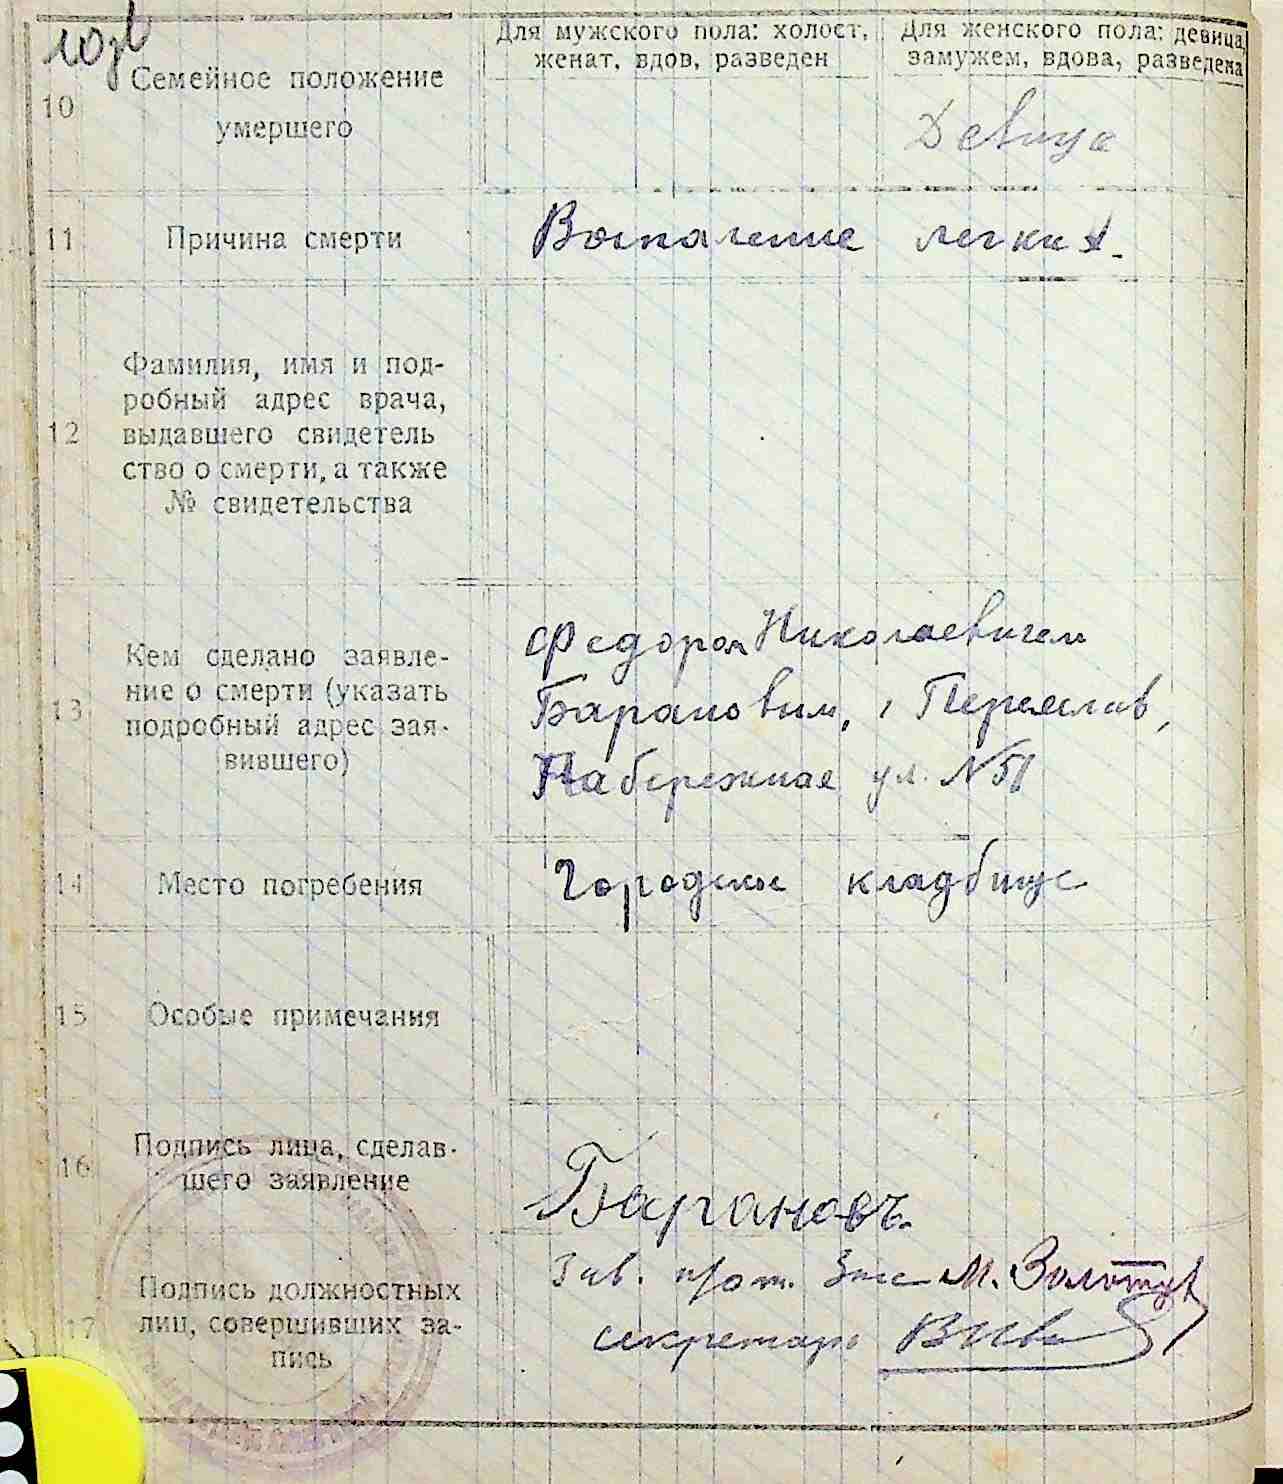 10
Семейное положение
умершего
Для мужского пола: холост,
женат, вдов, разведен
Для женского пола: девица,
замужем, вдова, разведена
Девица
11
Причина смерти
Воспаление легких.
12
Фамилия, имя и под-
робный адрес врача,
выдавшего свидетель
ство о смерти, а также
№ свидетельства
13
Кем сделано заявле-
ние о смерти (указать
подробный адрес зая-
вившего)
Федором Николаевичем
Барановым,
Набережная ул. №51
14
Место погребения
Городское кладбище
15
Особые примечания
16
Подпись лица, сделав-
шего заявление
Барановъ.
17
Подпись должностных
лиц, совершивших за-
пись
Зав. М.
секретарь